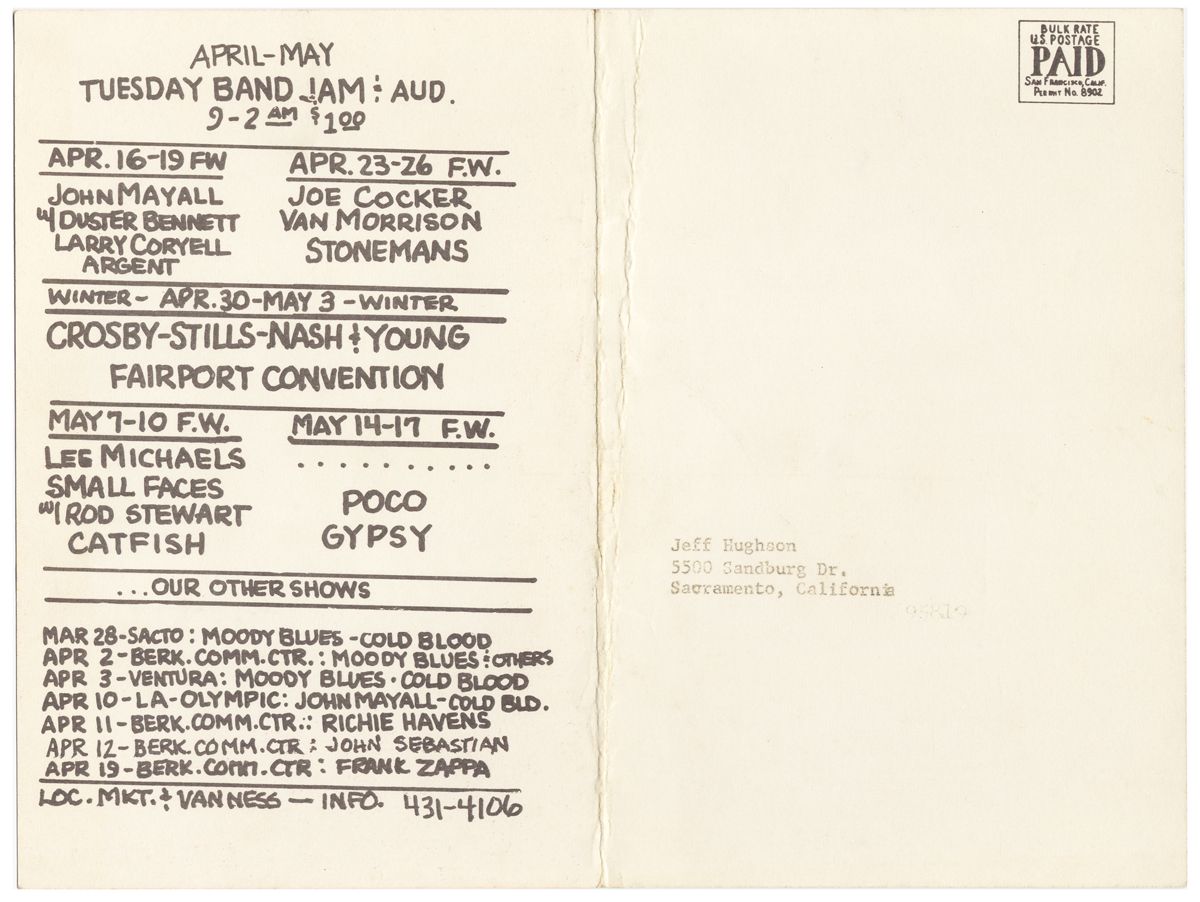 APRIL-MAY
TUESDAY BAND JAM & AUD.
9-2 AM $1.00
APR. 16-19 FW
JOHN MAYALL
W/ DUSTER BENNETT
LARRY CORYELL
ARGENT
APR. 23-26 F.W.
JOE COCKER
VAN MORRISON
STONEMANS
WINTER- APR. 30-MAY 3 - WINTER
CROSBY-STILLS-NASH & YOUNG
FAIRPORT CONVENTION
MAY 7-10 F.W.
LEE MICHAELS
SMALL FACES
W/ ROD STEWART
CATFISH
MAY 14-17 F.W.
..........
POCO
GYPSY
...OUR OTHER SHOWS
MAR 28-SACTO: MOODY BLUES - COLD BLOOD
APR 2-BERK.COMM.CTR.: MOODY BLUES & OTHERS
APR 3-VENTURA: MOODY BLUES - COLD BLOOD
APR 10-LA-OLYMPIC: JOHN MAYALL-COLD BLD.
APR 11-BERK.COMM.CTR.: RICHIE HAVENS
APR 12-BERK.COMM.CTR: JOHN SEBASTIAN
APR 19-BERK.COMM.CTR: FRANK ZAPPA
LOC. MKT. & VAN NESS — INFO. 431-4106
BULK RATE
U.S. POSTAGE
PAID
SAN FRANCISCO, CALIF.
PERMIT NO. 8902
Jeff Hughson
5500 Sandburg Dr.
Sacramento, California
95819